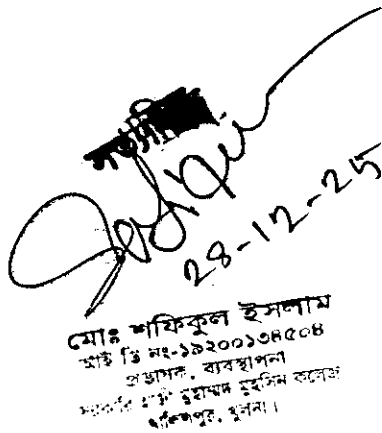 28-12-25
মোঃ শফিকুল ইসলাম
আই ডি নং-১৯২০০১৩৪৫০৪
প্রভাষক, ব্যবস্থাপনা
সরকারি হাজী মুহাম্মদ মুহসিন কলেজ
খালিশপুর, খুলনা।